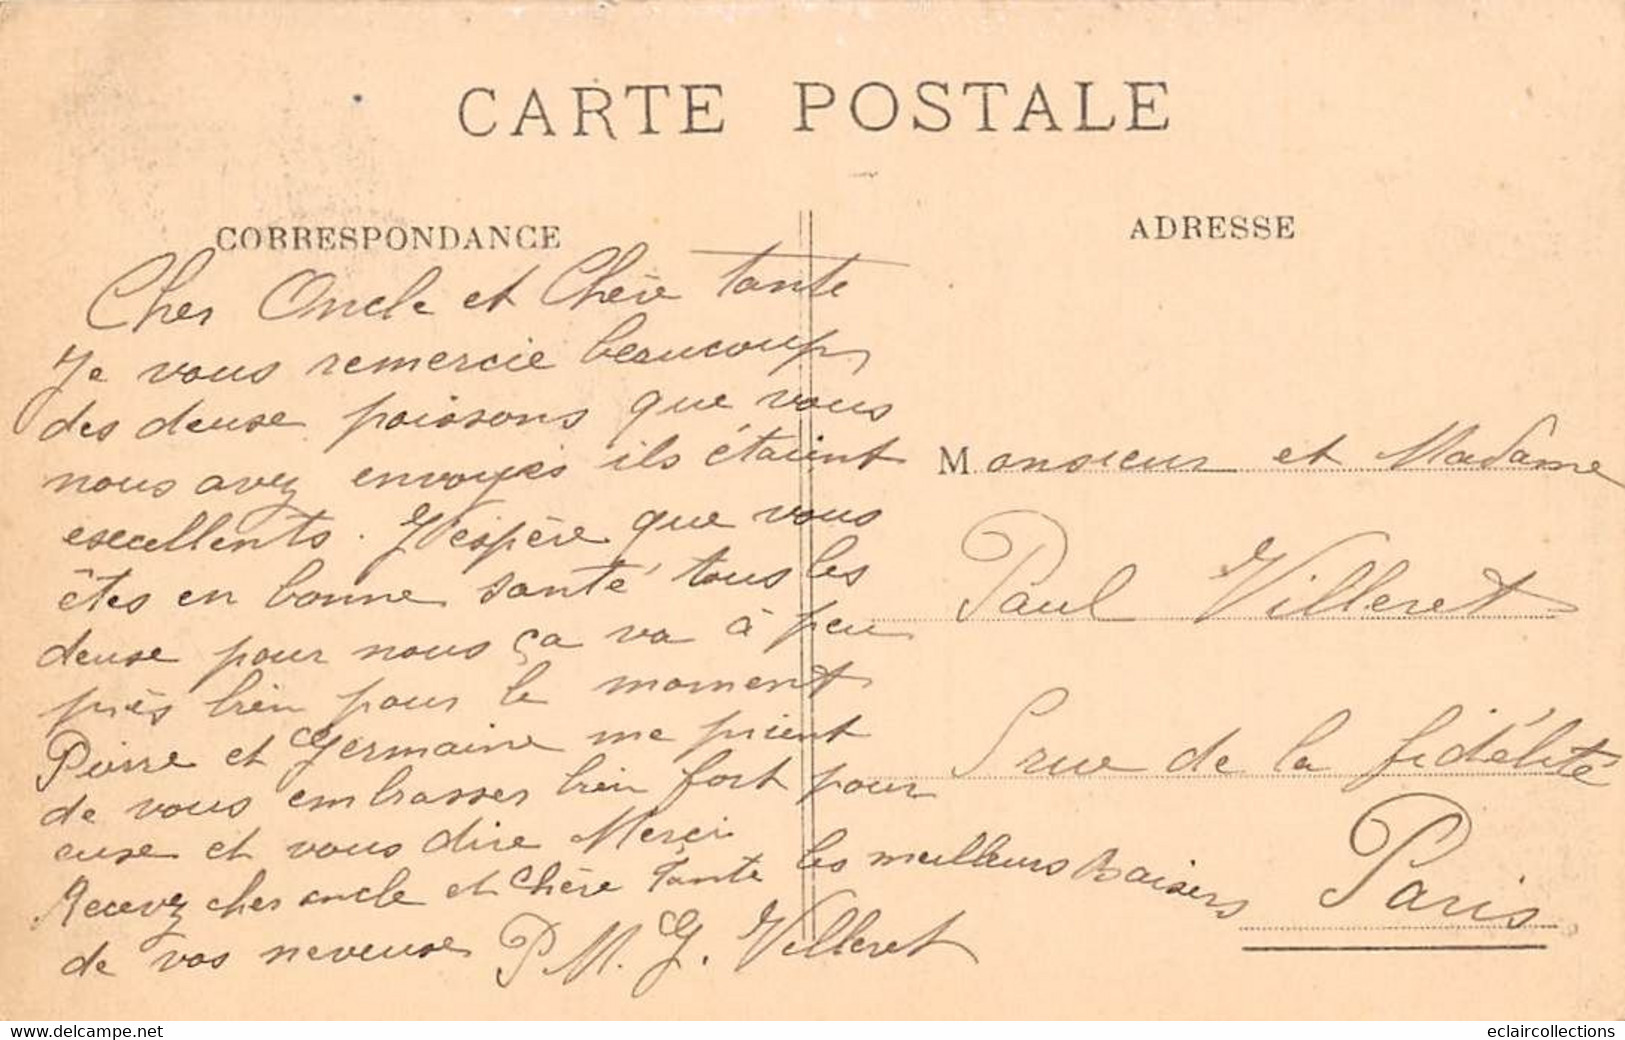 CARTE POSTALE
CORRESPONDANCE
ADRESSE
Cher Oncle et Chère Tante
Je vous remercie beaucoup
des deuse poissons que vous
nous avez envoyés ils étaient
esecellents. J'espère que vous
êtes en bonne santé tous les
deuse pour nous ça va à peu
près bien pour le moment
Pierre et Germaine me prient
de vous embrasser bien fort pour
euse et vous dire Merci
Recevez cher oncle et Chère Tante les meilleurs Baisers
de vos neveuse P. M. G. Villeret
Monsieur et Madame
Paul Villeret
5 rue de la fidélité
Paris
www.delcampe.net
eclaircollections